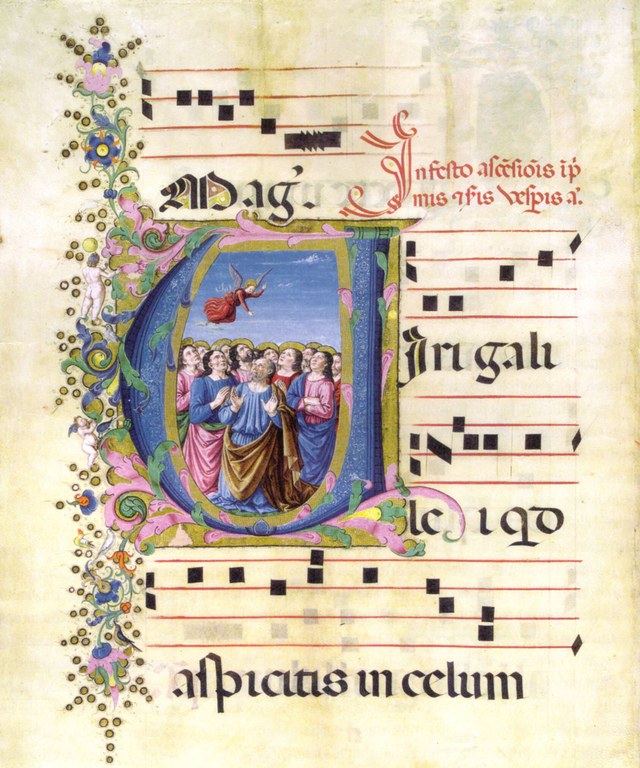 Mag̃.
In festo ascẽsiõis ĩ p̃
mis ⁊ ſ̃is veſp̃is a᷃.
Viri gali
lei qd
aſpicitis in celum